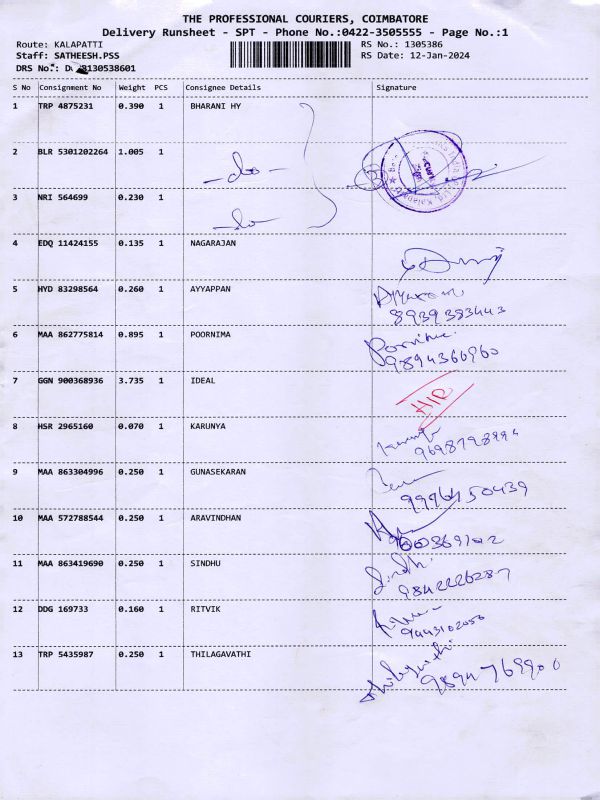 THE PROFESSIONAL COURIERS, COIMBATORE
Delivery Runsheet - SPT - Phone No.:0422-3505555 - Page No.:1
Route: KALAPATTI RS No.: 1305386
Staff: SATHEESH.PSS RS Date: 12-Jan-2024
DRS No.: 8130538601
S No Consignment No Weight PCS Consignee Details Signature
1 TRP 4875231 0.390 1 BHARANI HY
2 BLR 5301202264 1.005 1
-do-
3 NRI 564699 0.230 1
-do-
4 EDQ 11424155 0.135 1 NAGARAJAN
5 HYD 83298564 0.260 1 AYYAPPAN
8939383443
6 MAA 862775814 0.895 1 POORNIMA Poornima
9894366960
7 GGN 900368936 3.735 1 IDEAL
8 HSR 2965160 0.070 1 KARUNYA
9 MAA 863304996 0.250 1 GUNASEKARAN
10 MAA 572788544 0.250 1 ARAVINDHAN
11 MAA 863419690 0.250 1 SINDHU Sindhu
9842226287
12 DDG 169733 0.160 1 RITVIK
9443102050
13 TRP 5435987 0.250 1 THILAGAVATHI
9894769900